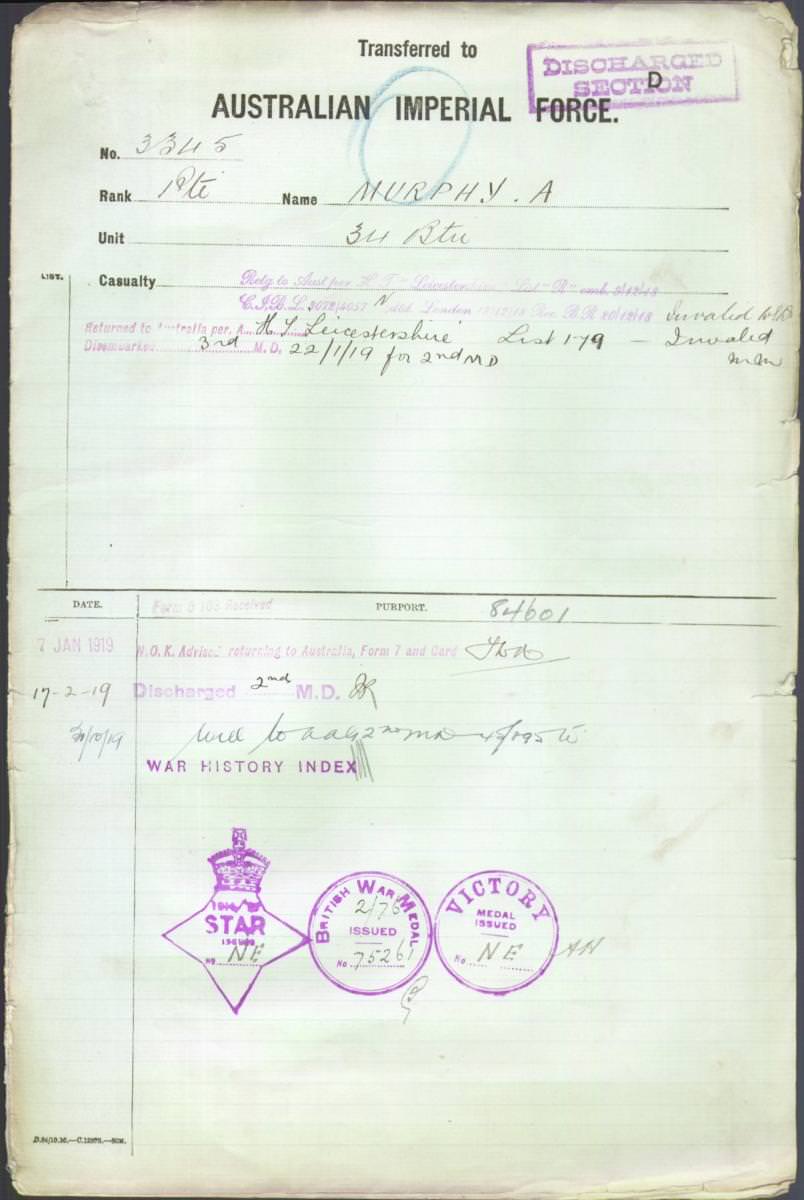 Transferred to
DISCHARGED
D
SECTION
AUSTRALIAN IMPERIAL FORCE.
No. 3345
Rank Pte Name MURPHY. A
Unit 34 Btn
LIST.
Casualty Retg to Aust per H.T. "Leicestershire" List "R" emb. 9/12/18
C.I.B.L. 3072/4057 N dated London 12/12/18 Rec. B.R. 20/12/18 Invalid
Returned to Australia per. H.T. Leicestershire List 179 — Invalid
Disembarked 3rd M.D. 22/1/19 for 2nd MD
DATE. Form B 103 Received PURPORT. 84601
7 JAN 1919 N.O.K. Advised returning to Australia, Form 7 and Card
17-2-19 Discharged 2nd M.D.
WAR HISTORY INDEX
STAR
ISSUED
No NE
BRITISH WAR MEDAL
2/76
ISSUED
No 75261
VICTORY
MEDAL
ISSUED
No NE